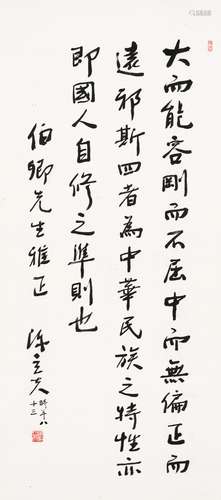 大而能容剛而不屈中而無偏正而
遠邪斯四者為中華民族之特性亦
即國人自修之準則也
伯卿先生雅正
陳立夫 時年八十三